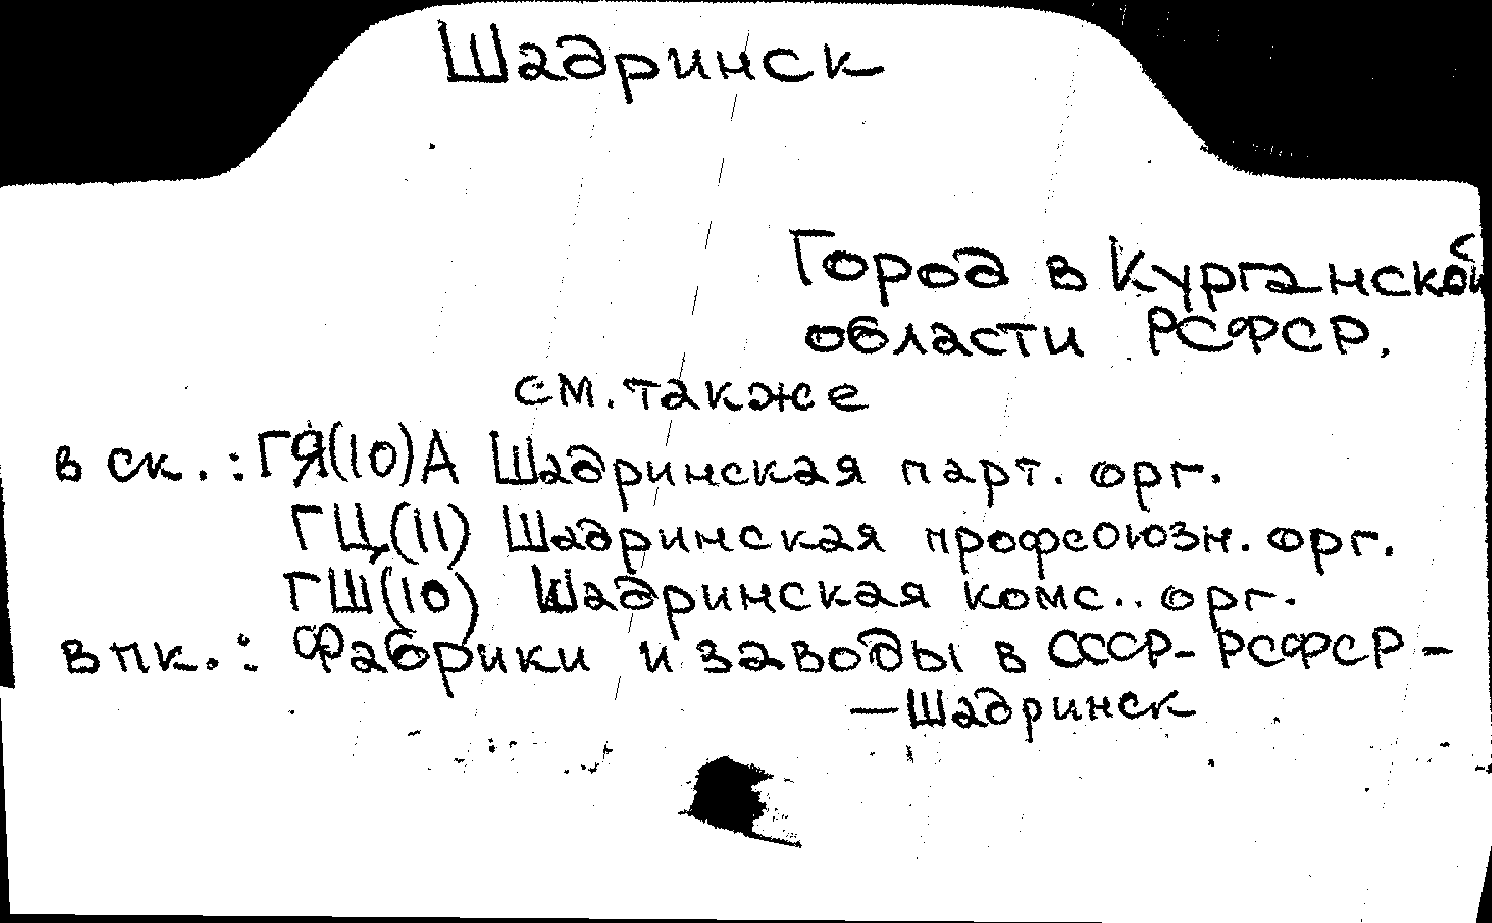 Шадринск
Город в Курганской
области РСФСР.
см. также
в ск.: ГЯ(10)А Шадринская парт. орг.
ГЦ(11) Шадринская профсоюзн. орг.
ГШ(10) Шадринская комс.. орг.
в пк.: Фабрики и заводы в СССР - РСФСР -
— Шадринск